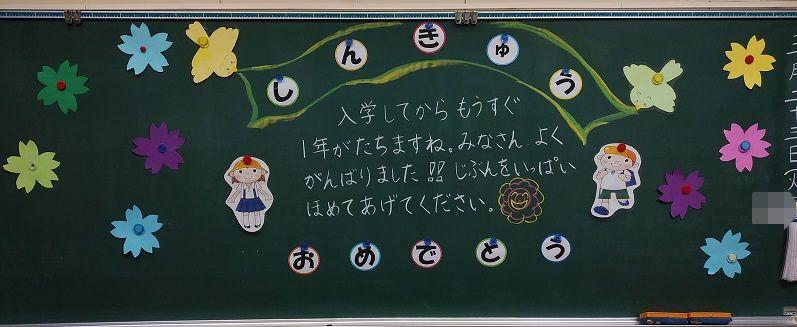 しんきゅう
入学してから もうすぐ
1年がたちますね。みなさん よく
がんばりました!! じぶんをいっぱい
ほめてあげてください。
おめでとう